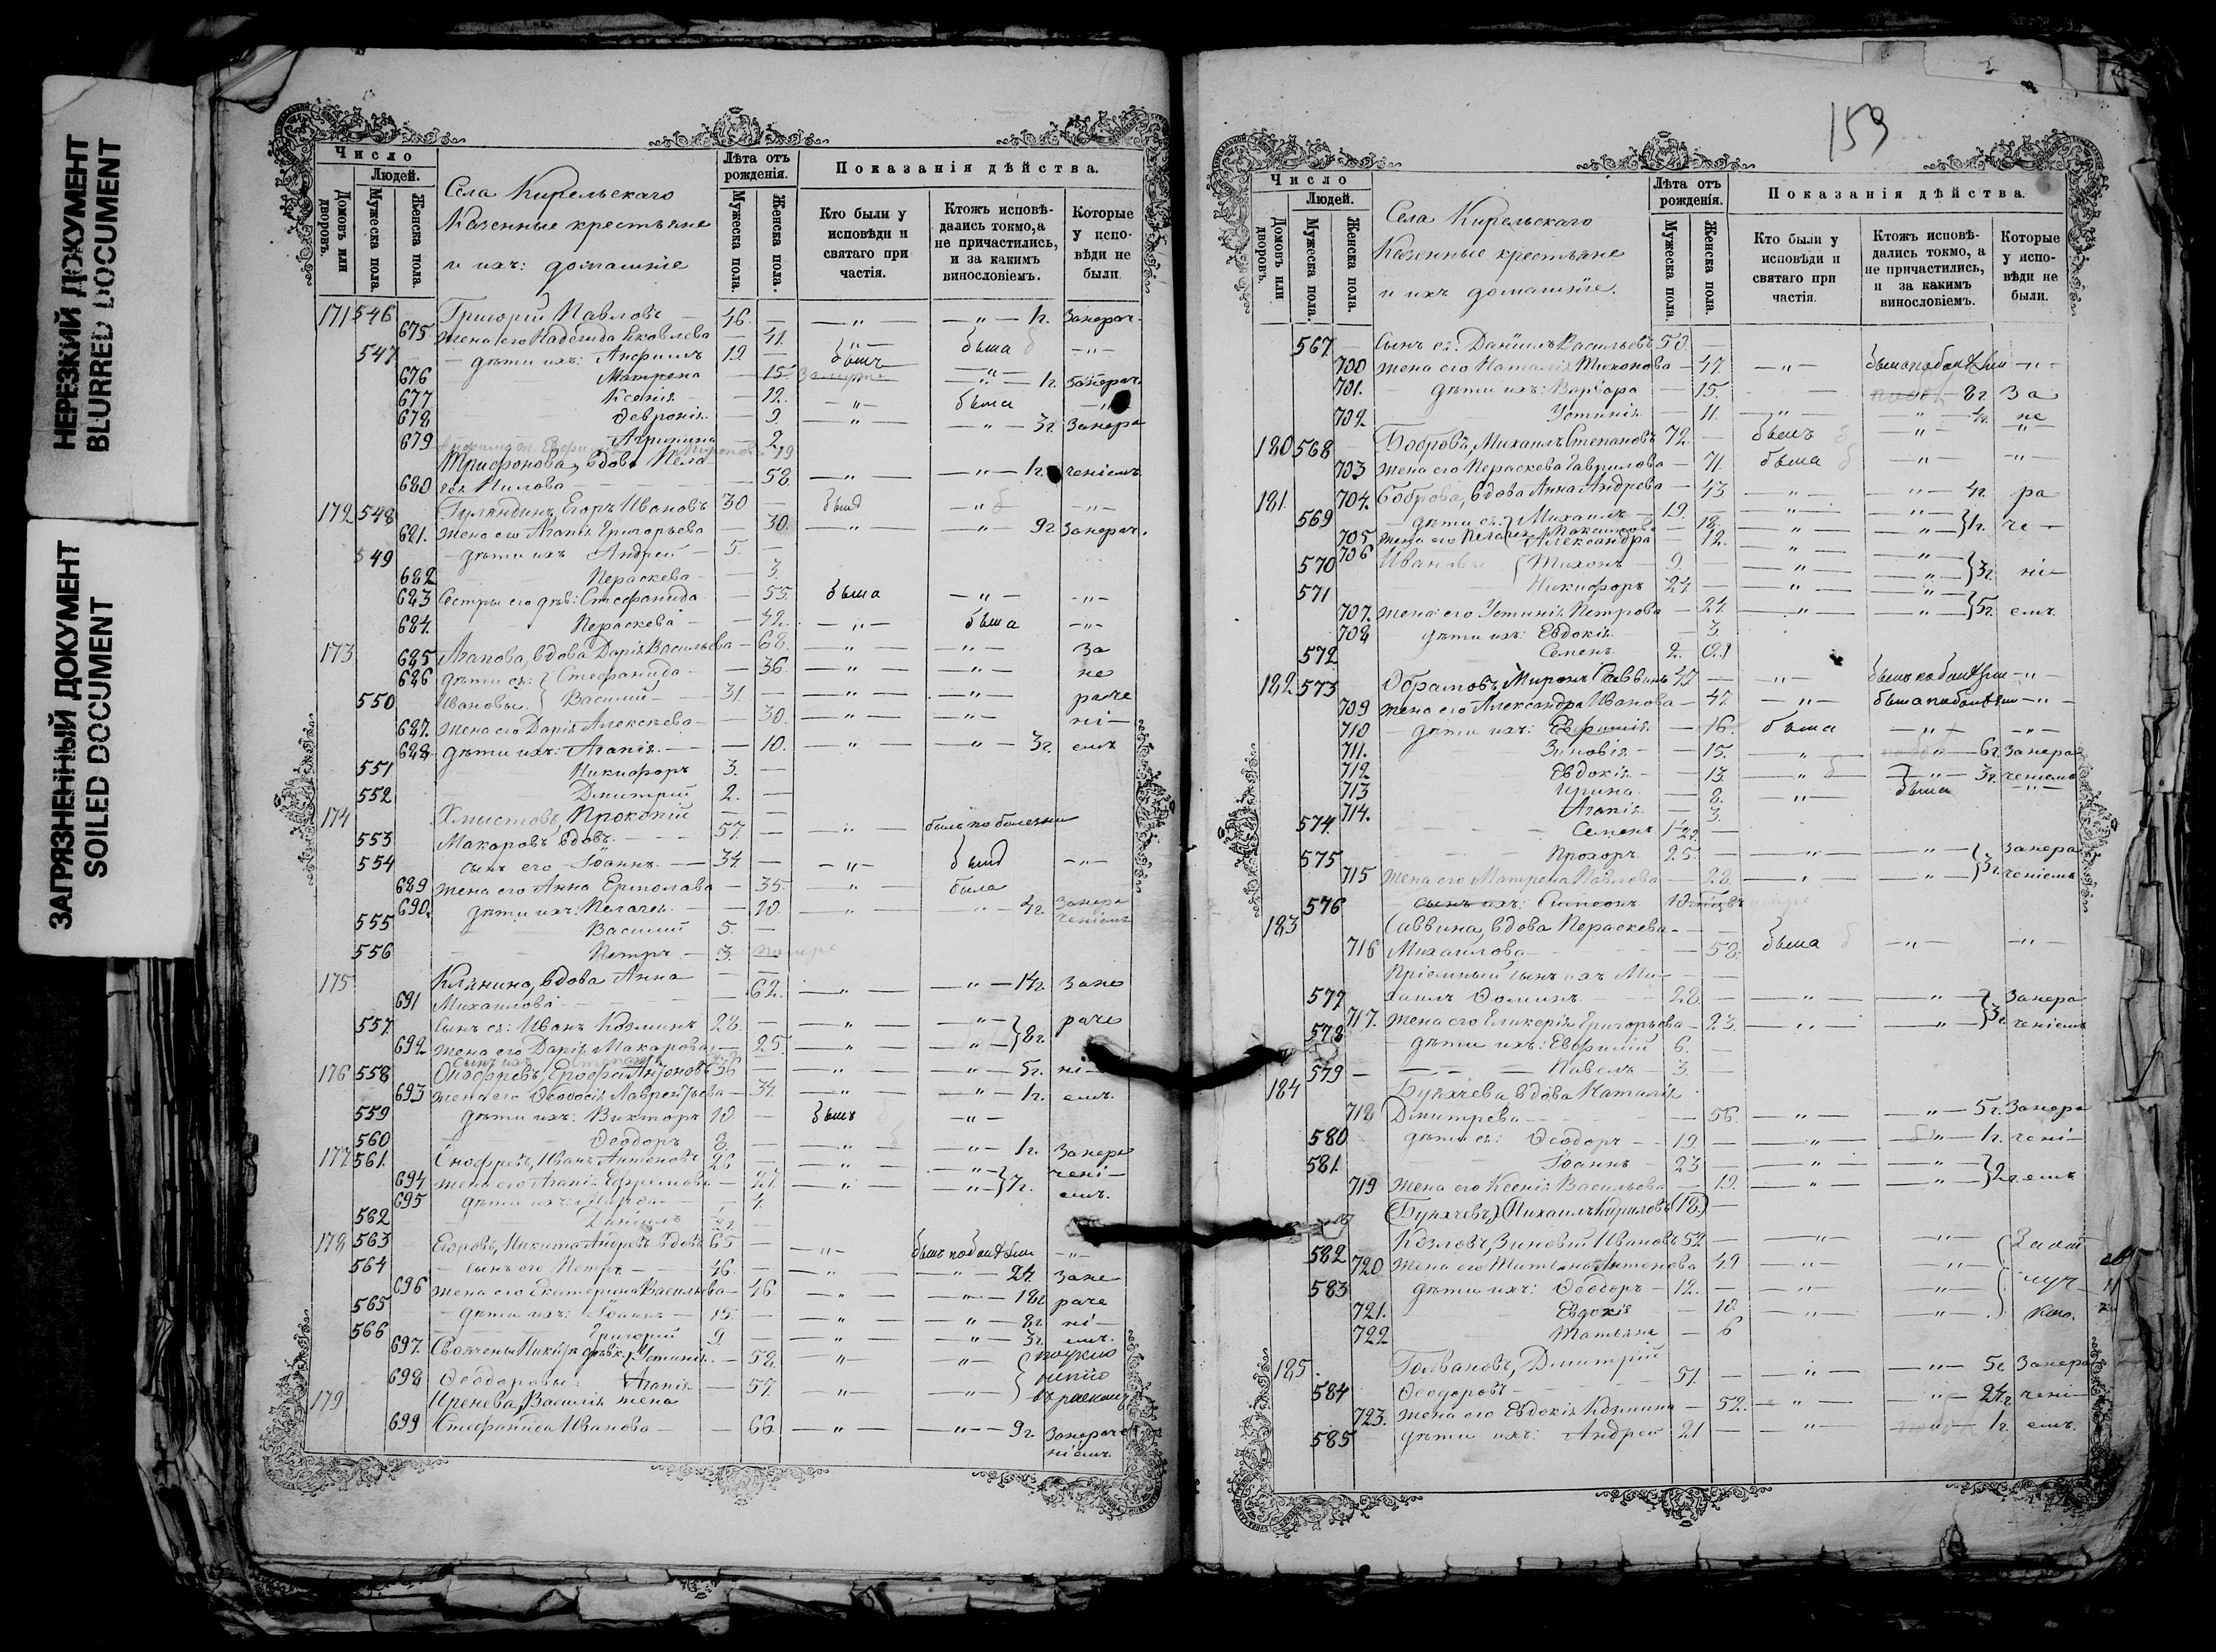 НЕРЕЗКИЙ ДОКУМЕНТ
BLURRED DOCUMENT
ЗАГРЯЗНЕННЫЙ ДОКУМЕНТ
SOILED DOCUMENT
Число
Людей.
Домовъ или дворовъ.
Мужеска пола.
Женска пола.
Села Кирельскаго
Казенные крестьяне
и ихъ: домашніе
Лѣта отъ рожденія.
Мужеска пола.
Женска пола.
Показанія дѣйства.
Кто были у исповѣди и святаго при частія.
Ктожъ исповѣ-дались токмо, а не причастились, и за какимъ винословіемъ.
Которые у испо-вѣди не были.
171 546 Григорій Павловъ 46. — „ — — „ — 1г. Занерач.
675 жена его Надежда Яковлева — 41. — „ — была — „ —
547 дѣти ихъ: Анфимъ 19 — былъ
676 Матрена — 15. — „ — 1г. Занерач.
677 Ксенія — 12. — „ — была
678 Февронія — 9. — „ — — „ — 3г. Занера
679 Агрипина — 2
Трифонова, вдова Пела-
680 гея Нилова — 58. — „ — — „ — 1г. ченіемъ
172 548 Гуляндинъ, Егоръ Ивановъ 30 — „ —
681. жена его Агапія Григорьева — 30. — „ — — „ — 9г Занерач.
549 дѣти ихъ Андрей 5. —
682 Пераскева — 3.
683 Сестры его дѣв: Стефанида — 55. была — „ — — „ —
684. Пераскева — 42. — „ — была — „ —
173 685 Агапова, вдова Дарія Васильева — 68. — „ — — „ — За
686 дѣти ея: Стефанида — 36. — „ — — „ — не
550 Ивановы. Василій 31. — — „ — — „ — раче
687. жена его Дарія Алексѣева — 30. — „ — — „ — ні —
688 дѣти ихъ: Агапія — 10. — „ — — „ — 3г. емъ
551 Никифоръ 3. —
552 Дмитрій 2. —
174 Хлыстовъ, Прокопій
553 Макаровъ вдовъ. 57. — „ былъ по болезни
554 сынъ его Іоаннъ. 34. — — „ — — „ —
689 жена его Анна Ермолаева — 35. — „ — была
690. дѣти ихъ: Пелагея — 10. — „ — „ 4г. Занера ченіемъ
555 Василій 5. —
556 Петръ 3.
175 Клянина, вдова Анна
691 Михаилова — 62. — „ — — „ — 14г. Зане
557. сынъ ея: Иванъ Козминъ 28. — — „ — — „ — раче
692 жена его Дарія Макарова — 25. — „ — — „ — 8г.
176 558 Онофревъ, Ерофей Антоновъ 36 — — „ — — „ — 5г. ні —
693 жена его Ѳеодосія Лаврентьева — 34. — „ — — „ — 1г. емъ.
559 дѣти ихъ: Викторъ 10 — былъ — „ —
560 Ѳеодоръ 8. — — „ — — „ — 1г. Занера
177 561. Онофревъ, Иванъ Антоновъ 26 — — „ — — „ — чені —
694 жена его Агапія Ефремова — 27. — „ — — „ — 7г. емъ.
695 дѣти ихъ: Марѳа — 4.
562 Даніилъ
178 563 Егоровъ, Никита Андревъ вдовъ 65 — — „ — — „ —
564 сынъ его Петръ 46. — — „ — — „ — 24. Зане
696 жена его Екатерина Васильева — 46 — „ — — „ — 18г раче
565 дѣти ихъ: Іоаннъ 15. — — „ — — „ — 8г. ні —
566 Григорій 9 — — „ — — „ — 3г. емъ.
697. Устинія — 58. — „ — — „ —
698 Ѳеодоровы: Агапія — 57. — „ — — „ — въ расколѣ
179 Иренева, Василія жена
699 Стефанида Иванова — 66. — „ — — „ — 9г. Занераче ніемъ.
159
Число
Людей.
Домовъ или дворовъ.
Мужеска пола.
Женска пола.
Села Кирельскаго
Казенные крестьяне
и ихъ домашніе.
Лѣта отъ рожденія.
Мужеска пола.
Женска пола.
Показанія дѣйства.
Кто были у исповѣди и святаго при частія.
Ктожъ исповѣ-дались токмо, а не причастились, и за какимъ винословіемъ.
Которые у испо-вѣди не были.
567. сынъ ея: Даніилъ Васильевъ 50 —
700 жена его Наталія Тихонова — 47. — „ — — „ —
701. дѣти ихъ: Варвара — 15. 8г. За
702 Устинія — 11. — „ — — „ — 4г. не
180 568 Бобровъ, Михаилъ Степановъ 72. — былъ — „ — — „ —
703 жена его Пераскева Гаврилова — 71. была — „ — — „ —
181. 704. Боброва, вдова Анна Андрева — 43 — „ — — „ — 4г. ра
569 дѣти ея: Михаилъ 19. — — „ — — „ —
705 жена его Пелагея Максимова — 18. — „ — — „ — 1г. че —
706 Александра — 12. — „ — — „ —
570 Ивановы Тихонъ 9. — — „ — — „ — 3г. ні —
571 Никифоръ 24 — „ — — „ —
707. жена его Устинія Петрова — 24. — „ — — „ — 5г. емъ.
708 дѣти ихъ: Евдокія — 3.
572 Семенъ 2.
182 573 Абрамовъ, Миронъ Саввинъ 47. — — „ — — „ —
709 жена его Александра Иванова — 47. — „ —
710 дѣти ихъ: Евфимія — 16. была — „ — — „ —
711. Зиновія — 15. — „ — 6г. Занера
712 Евдокія — 13. — „ — — „ — 3г. ченіемъ
713 Ирина — 8. — „ — была — „ —
714. Агапія — 3.
574. Семенъ —
575 Прохоръ 25. — — „ — — „ — Занера
715 жена его Матрена Павлова — 28. — „ — — „ — 3г. ченіемъ
576 сынъ ихъ: Симеонъ
183 Саввина, вдова Пераскева
716 Михаилова — 58. была — „ — — „ —
Пріемный сынъ ихъ Ми-
577. хаилъ Ѳоминъ 28. — — „ — — „ — Занера
717. жена его Гликерія Григорьева — 23. — „ — — „ — 3г. ченіемъ
578 дѣти ихъ: Евфимій 6. —
579 Павелъ 3. —
184 Букачева вдова Наталія
718 Дмитрева — 56. — „ — — „ — 5г. Занера
580 дѣти ея: Ѳеодоръ 19 — — „ — 1г. чені —
581. Іоаннъ 23 — — „ — — „ —
719 жена его Ксенія Васильева — 19. — „ — — „ — 2г. емъ
(Букачевъ,) (Михаилъ Кириловъ (18.) —
582 Козловъ, Зиновій Ивановъ 52. — — „ — — „ —
720 жена его Татьяна Антонова 49 — „ — — „ —
583 дѣти ихъ: Ѳеодоръ 12. — — „ — — „ —
721. Евдокія — 10. — „ — — „ —
722 Татьяна — 6
185. Голвановъ, Дмитрій
584 Ѳеодоровъ 51. — — „ — — „ — 5г. Занера
723. жена его Евдокія Козмина — 52. — „ — — „ — 24г. чені —
585 дѣти ихъ: Андрей 21 — — „ — 1г. емъ.